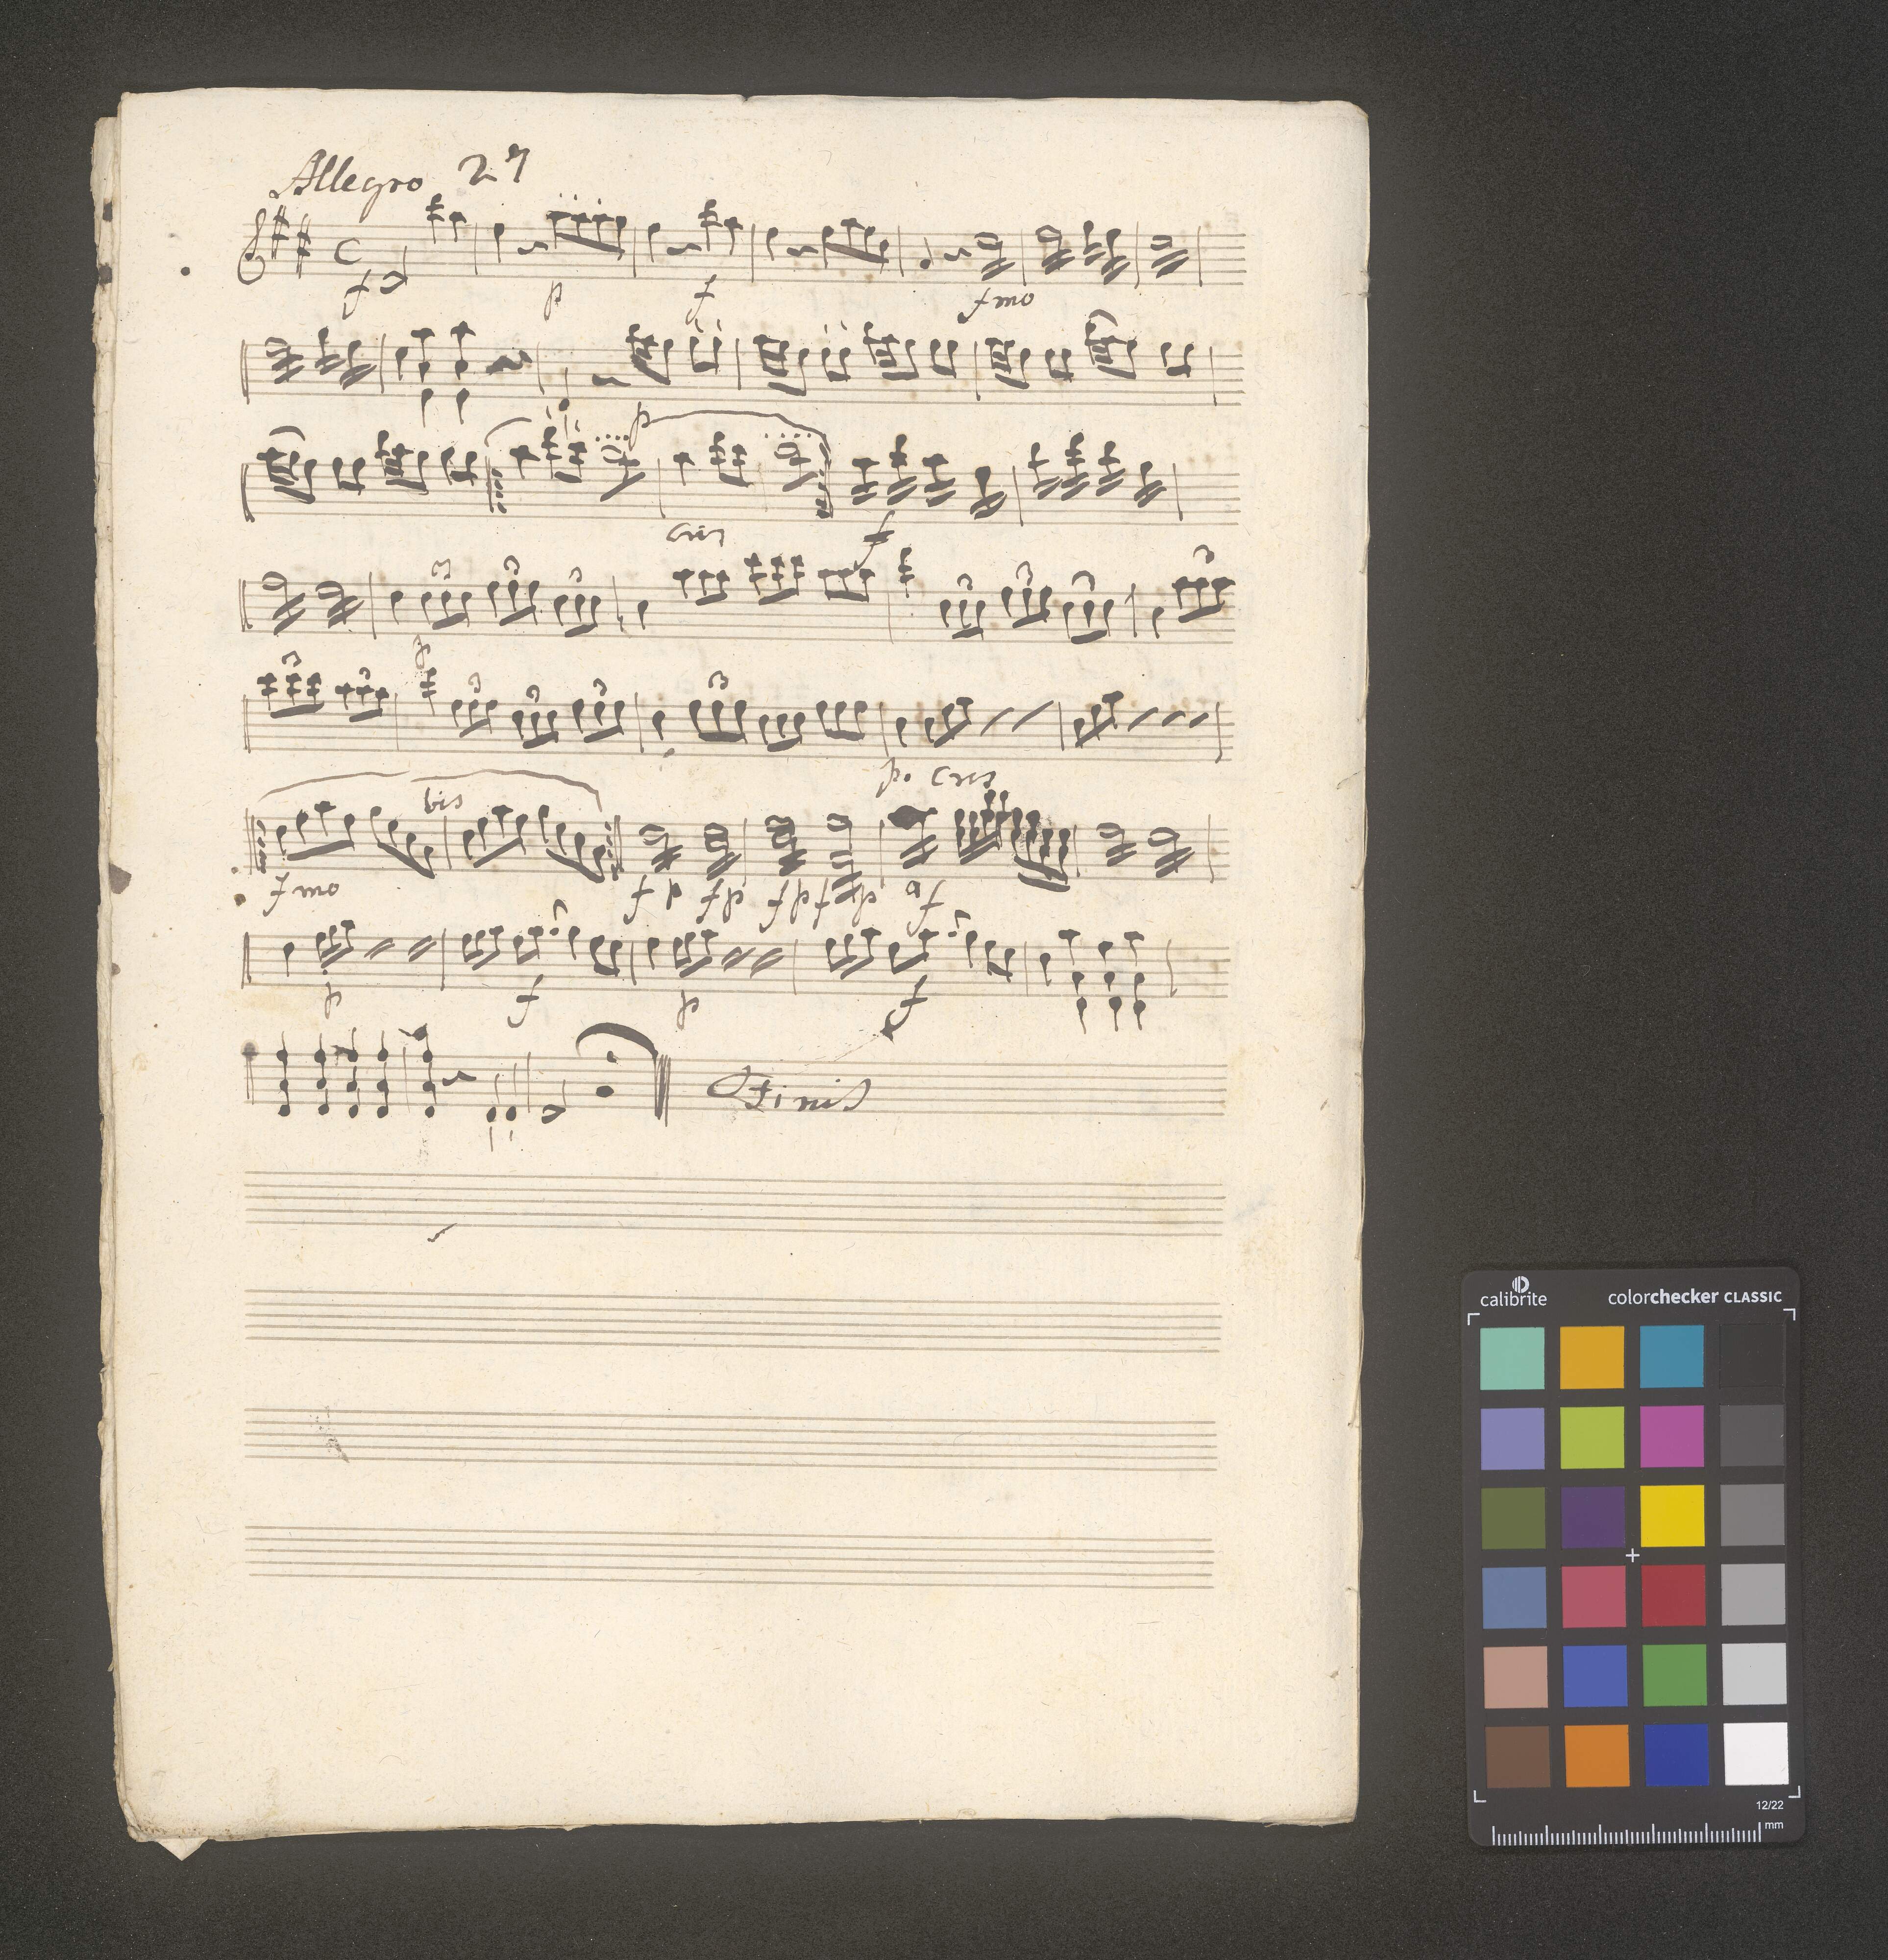 Allegro 27
f p f fmo
p
cres f
3 3 3 3 3 3 3
p
3 3 3 3 3 3
p. cres
bis
fmo f p fp fp fp f
p f p f
Finis
calibrite colorchecker CLASSIC
12/22
mm